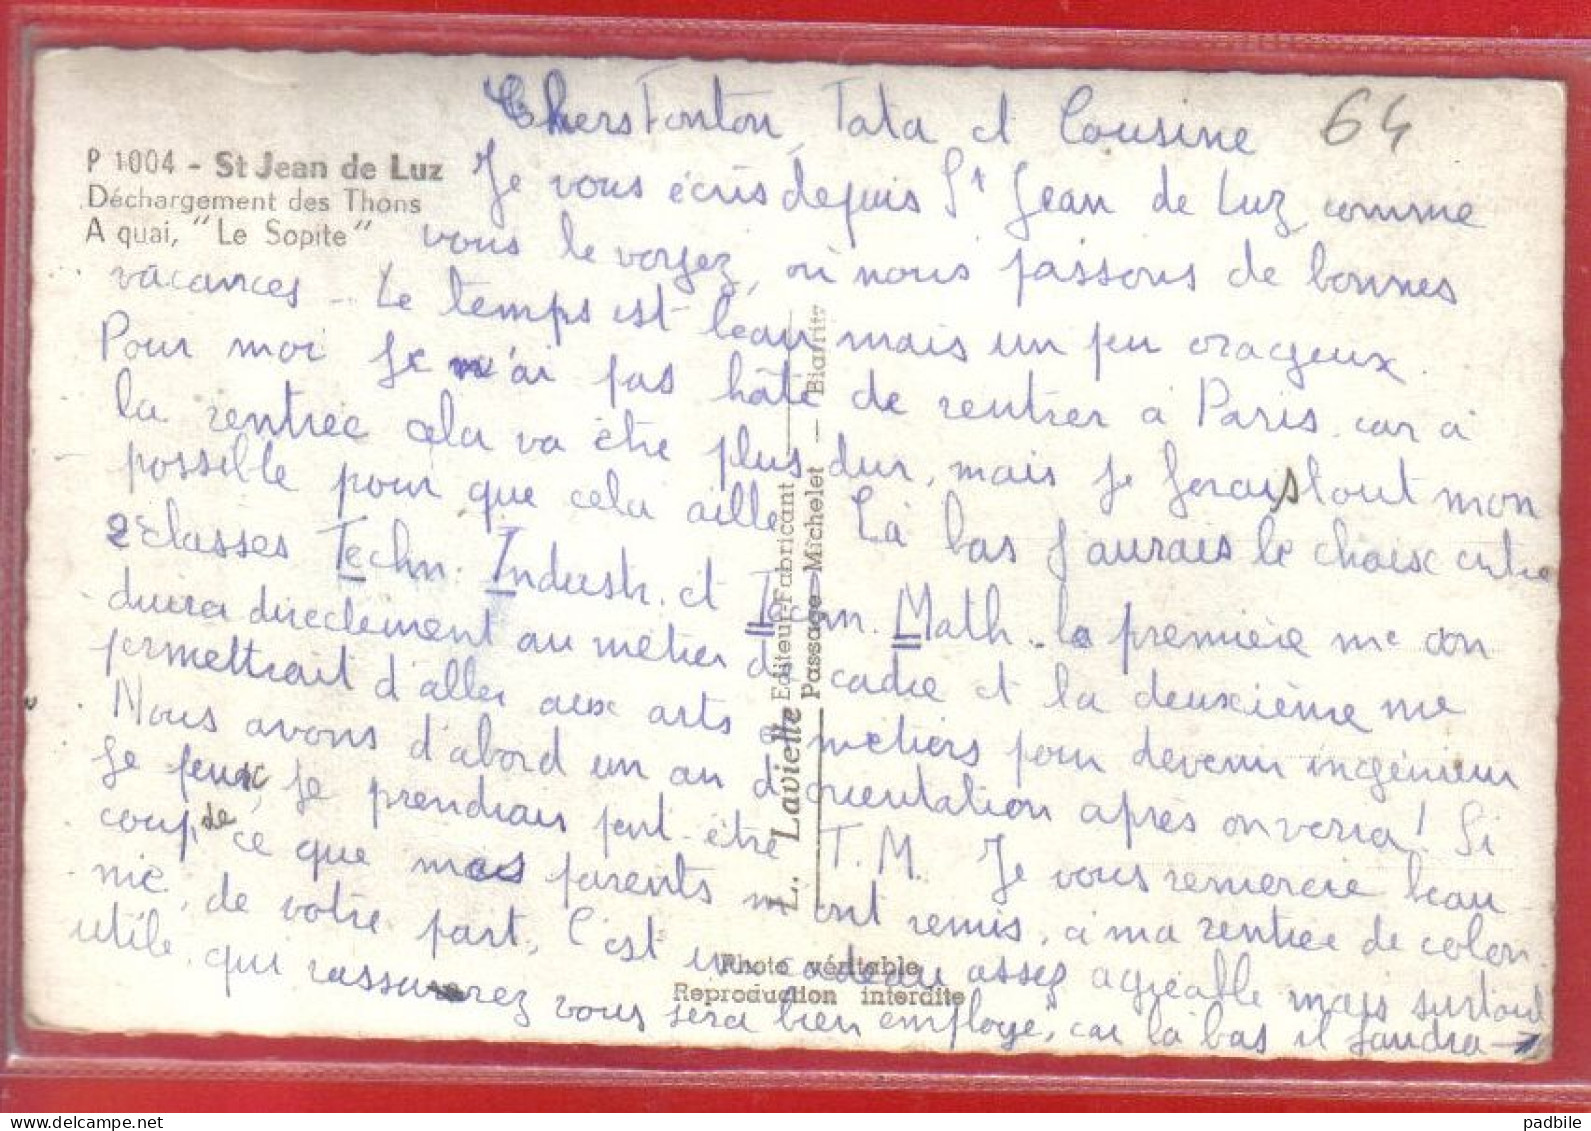 Chers Tonton, Tata et Cousine
64
P 1004 - St Jean de Luz
Déchargement des Thons
A quai, "Le Sopite"
Je vous écris depuis St Jean de Luz, comme
vous le voyez, où nous passons de bonnes
vacances - Le temps est beau mais un peu orageux.
Pour moi je n'ai pas hâte de rentrer à Paris, car à
la rentrée cela va être plus dur, mais je ferais tout mon
possible pour que cela aille. Là bas j'aurais le choix entre
2 classes Techn. Industr. et Techn. Math. la première me con
duira directement au métier de cadre et la deuxième me
permettrait d'aller aux arts & métiers pour devenir ingénieur
Nous avons d'abord un an d'orientation après on verra! Si
je peux, je prendrais peut-être T.M. Je vous remercie beau
coup de ce que mes parents m'ont remis, à ma rentrée de colon
nie, de votre part, C'est un cadeau assez agréable mais surtout
utile, qui rassurez vous sera bien employé, car là bas il faudra →
L. Lavielle Editeur-Fabricant
Passage Michelet — Biarritz
Photo véritable
Reproduction interdite
padbile